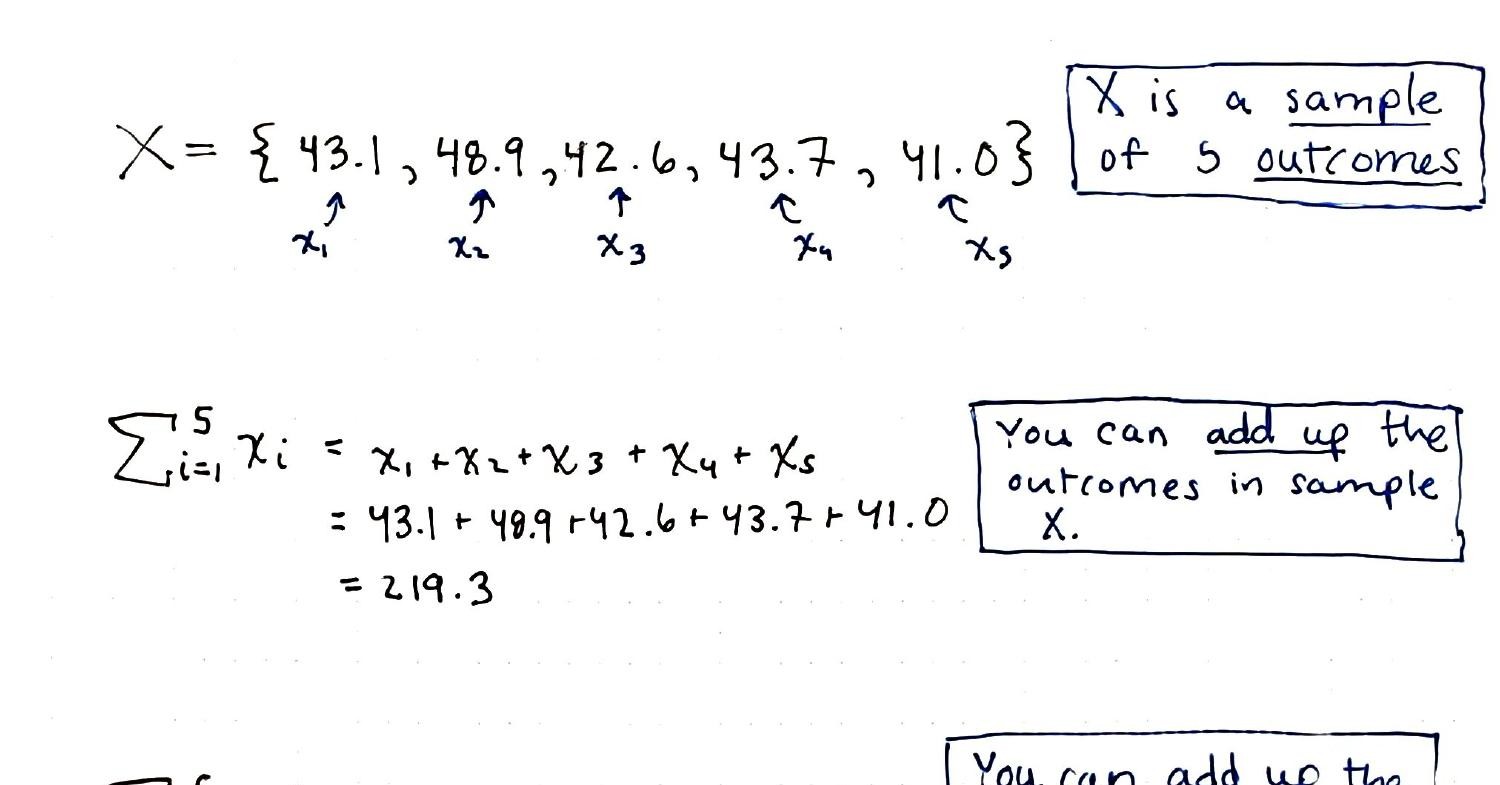 X = { 43.1 , 48.9 , 42.6 , 43.7 , 41.0 }
x₁ x₂ x₃ x₄ x₅
X is a sample
of 5 outcomes
∑⁵ᵢ₌₁ xᵢ = x₁ + x₂ + x₃ + x₄ + x₅
= 43.1 + 48.9 + 42.6 + 43.7 + 41.0
= 219.3
You can add up the
outcomes in sample
X.
You can add up the